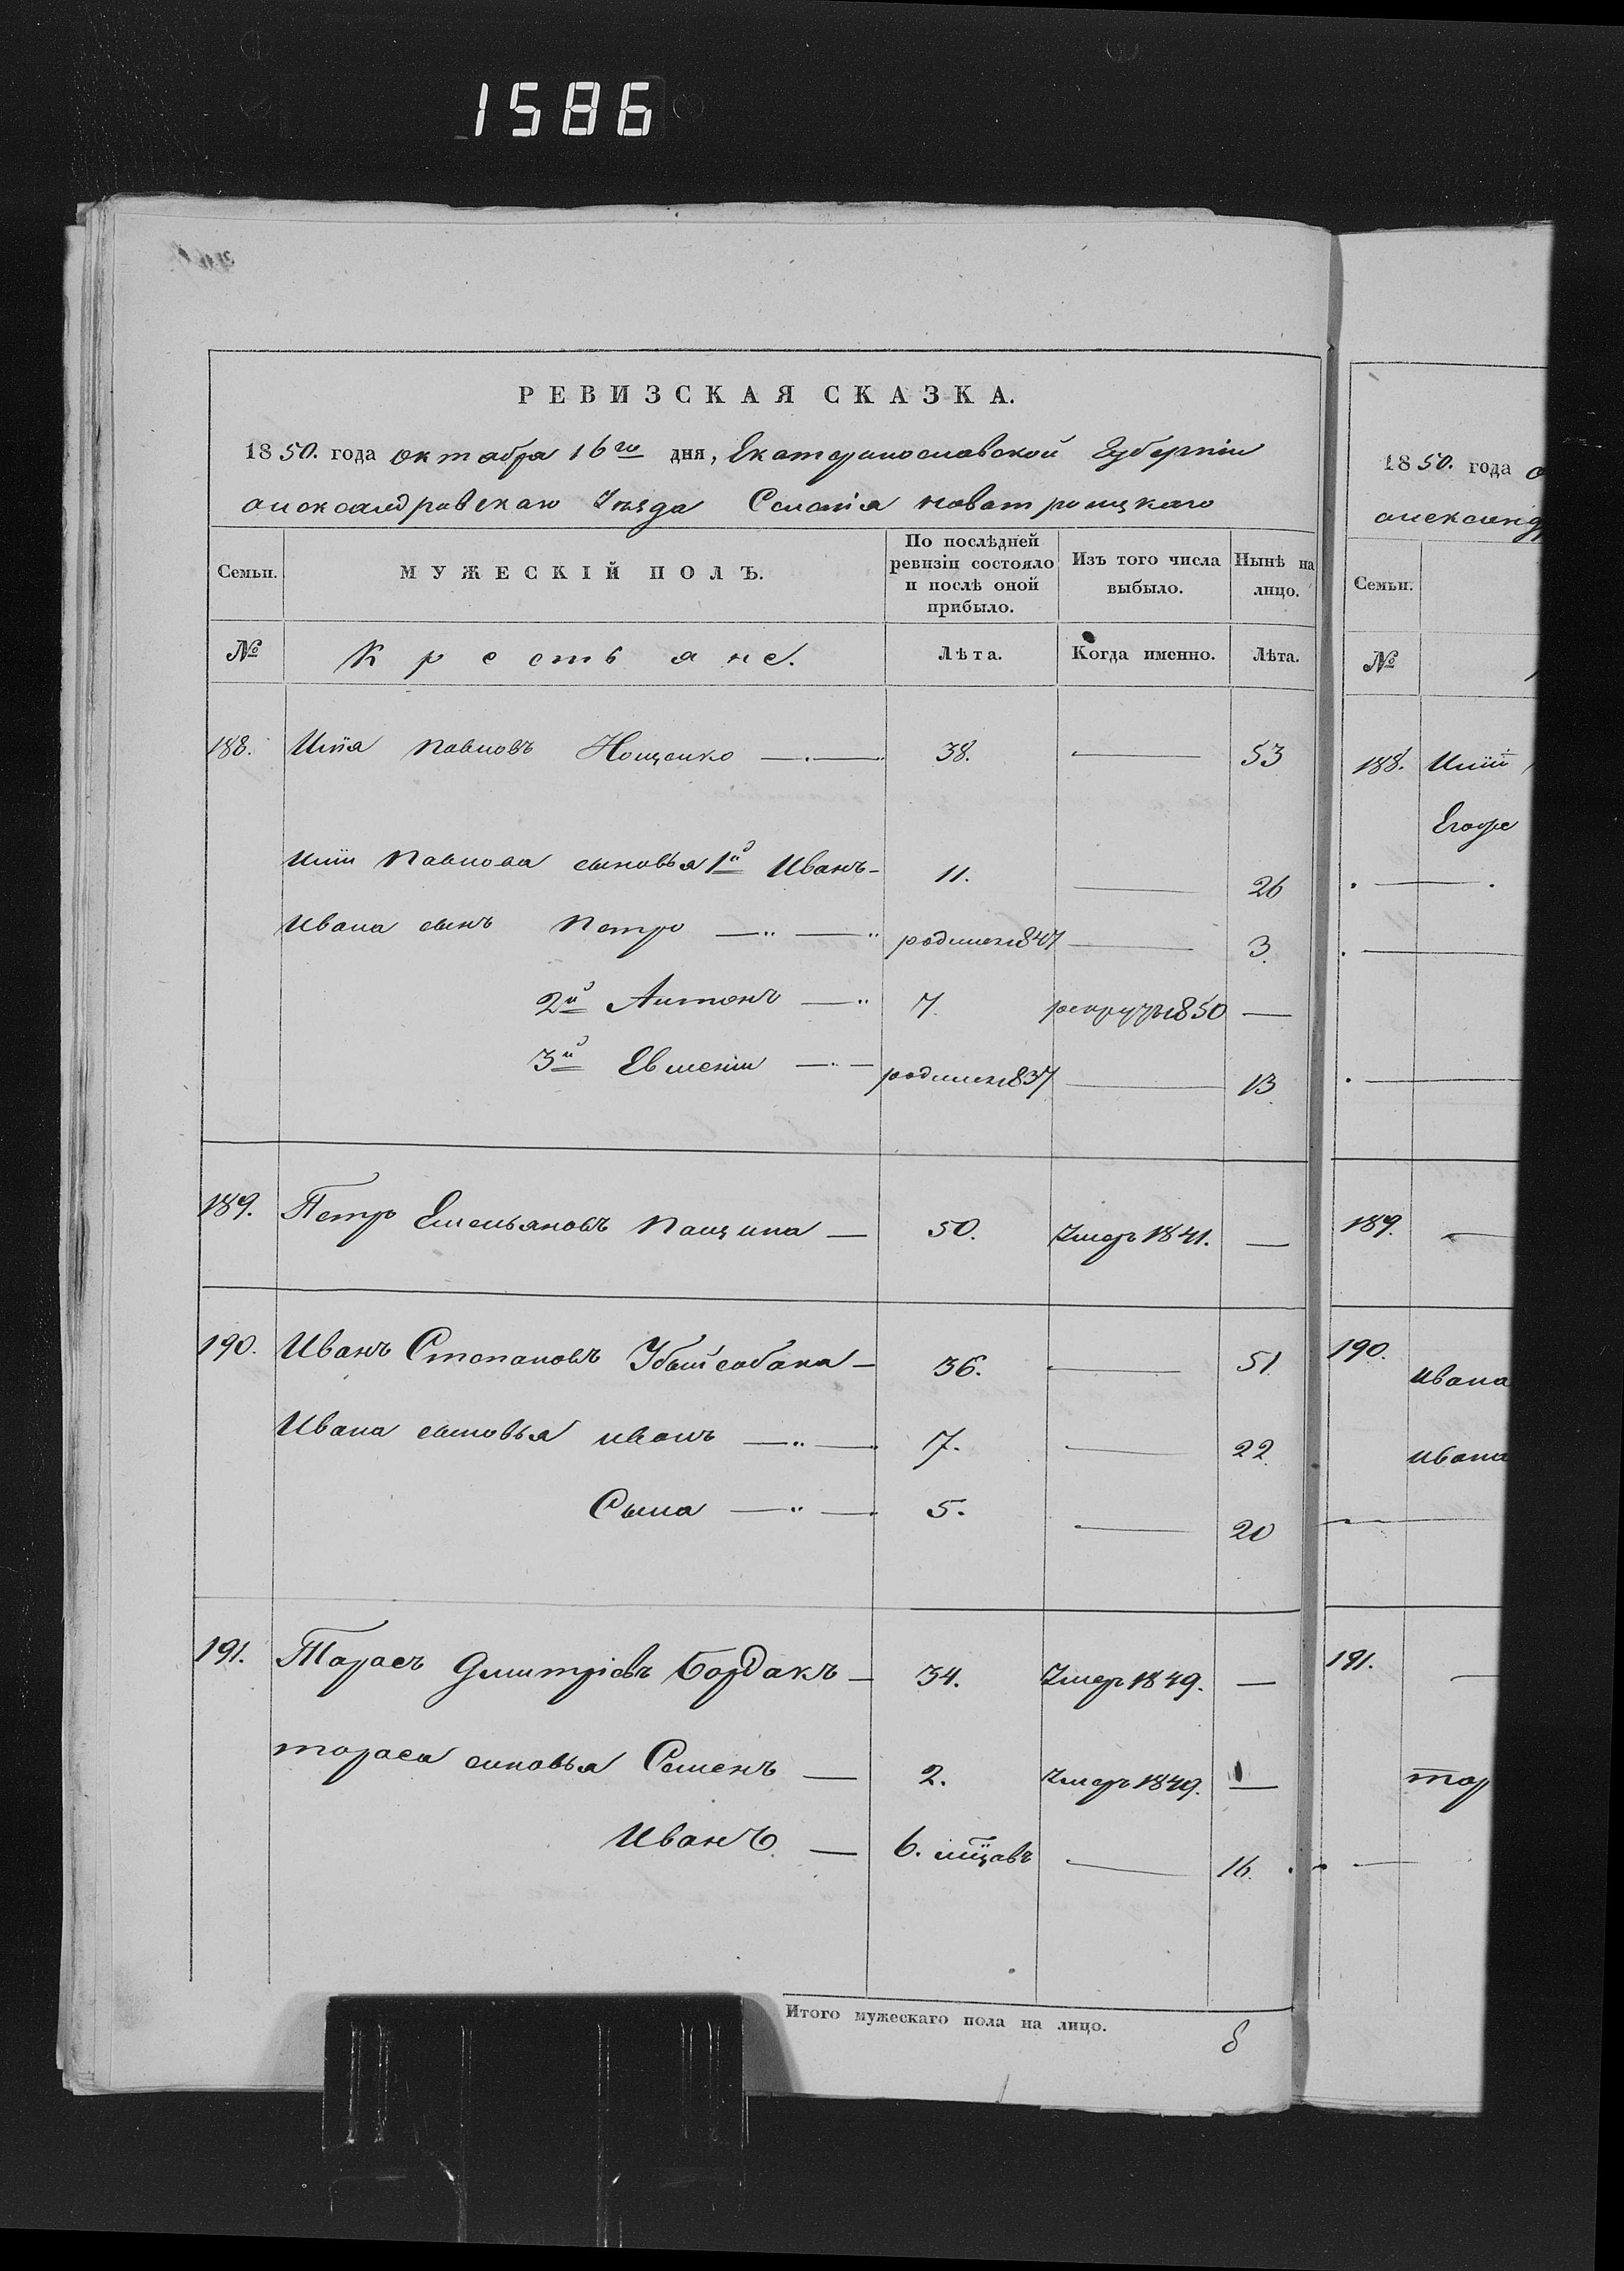 1586
РЕВИЗСКАЯ СКАЗКА.
1850. года октабря 16го дня, Екатеринославской Губерніи
александровскаго Уезда Селенія новотроицкаго
Семьи. МУЖЕСКІЙ ПОЛЪ. По послѣдней ревизіи состояло и послѣ оной прибыло. Изъ того числа выбыло. Нынѣ на лицо.
№ Крестьяне. Лѣта. Когда именно. Лѣта.
188. Илія павловъ Нощенко 38. — 53
Иліи павлова сыновья 1й Иванъ 11. — 26
Ивана сынъ Петро родилен 1847 — 3.
2й Антонъ 7. рекрутъ 1850 —
3й Евмений родилен 1837 — 13.
189. Петръ Емельяновъ пащина — 50. Умеръ 1841. —
190. Иванъ Степановъ Убейсобака — 36. — 51.
Ивана сыновья иванъ — 7. — 22.
Сыла — 5. — 20
191. Тарасъ Дмитріевъ Бордакъ — 34. Умеръ 1849. —
тараса синовья Семенъ — 2. Умеръ 1849. —
Иванъ. — 6. мцавъ — 16.
Итого мужескаго пола на лицо. 8
1850. года о
александ
Семьи.
№
188. Иліи
Егора
189.
190. ивана
ивана
191.
тар